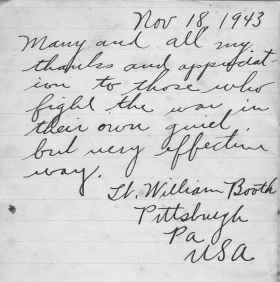 Nov 18, 1943
Many and all my
thanks and appreciat-
ion to those who
fight the war in
their own quiet,
but very effective
way.
Lt. William Booth
Pittsburgh
Pa
USA